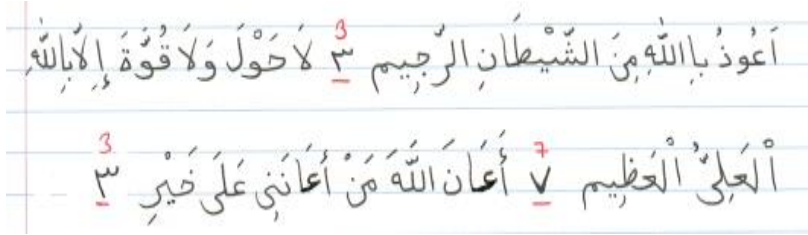 اَعُوذُ بِااللّٰهِ مِنَ الشَّيْطَانِ الرَّجِيم ٣ 3 لَا حَوْلَ وَلَا قُوَّةَ إِلَّا بِاللّٰهِ
اْلعَلِيُّ اْلعَظِيم ٧ 7 أَعَانَ اللّٰهَ مَنْ أَعَانَنِي عَلَى خَيْرِ ٣ 3